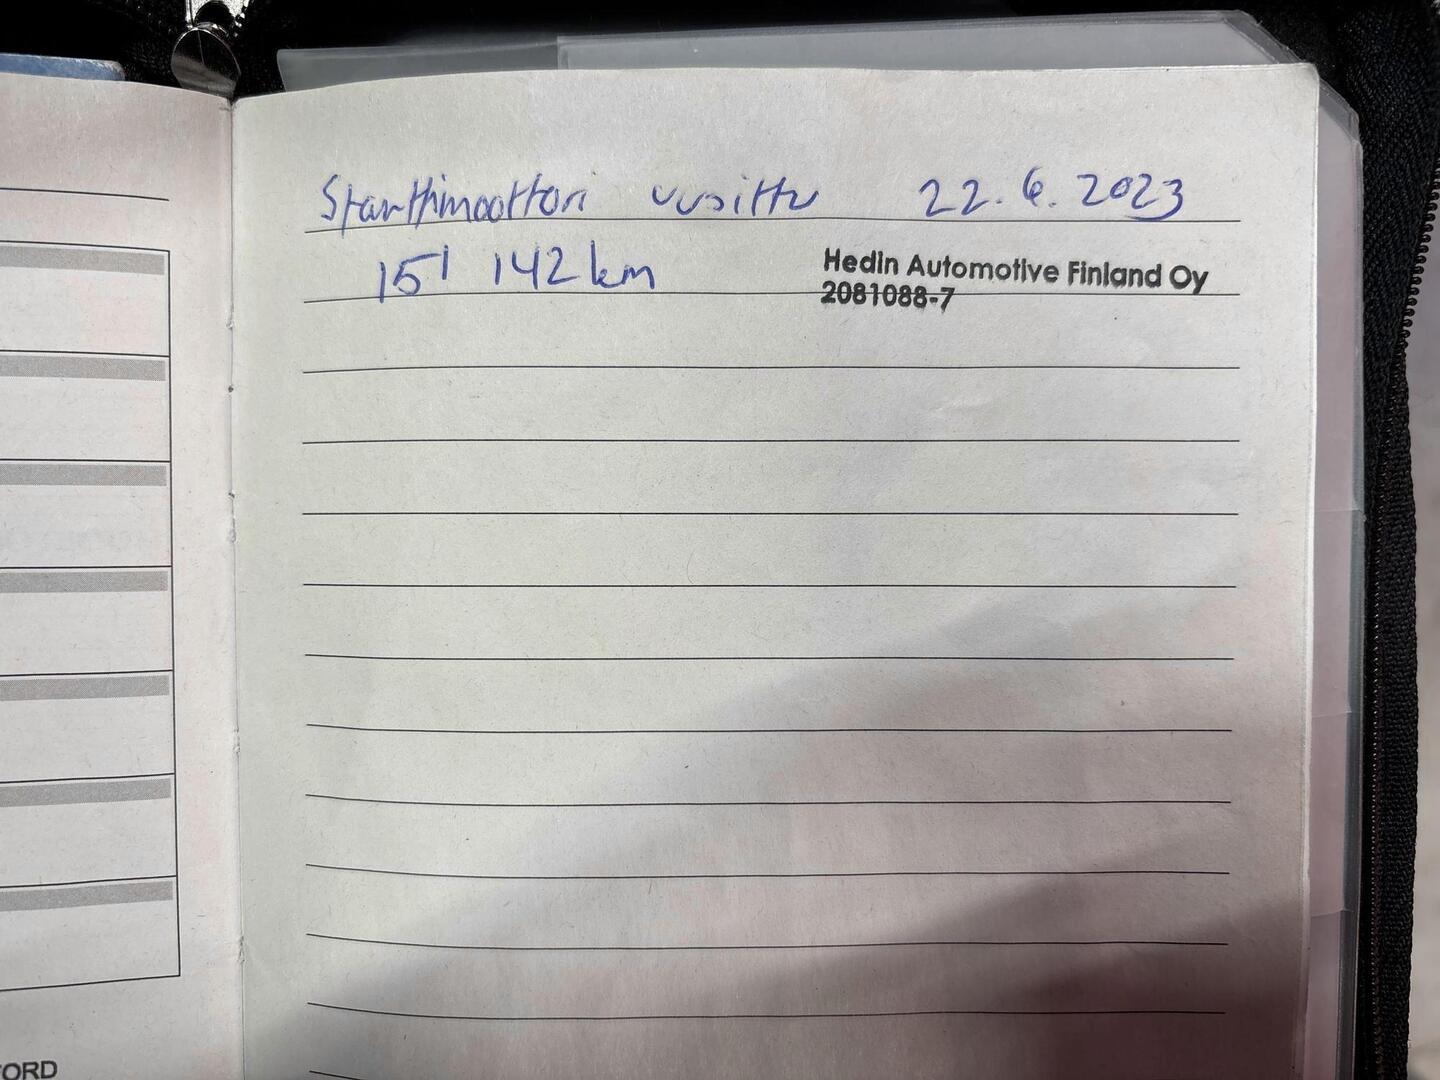 Starttimoottori uusittu 22.6.2023
151 142 km
Hedin Automotive Finland Oy
2081088-7
FORD